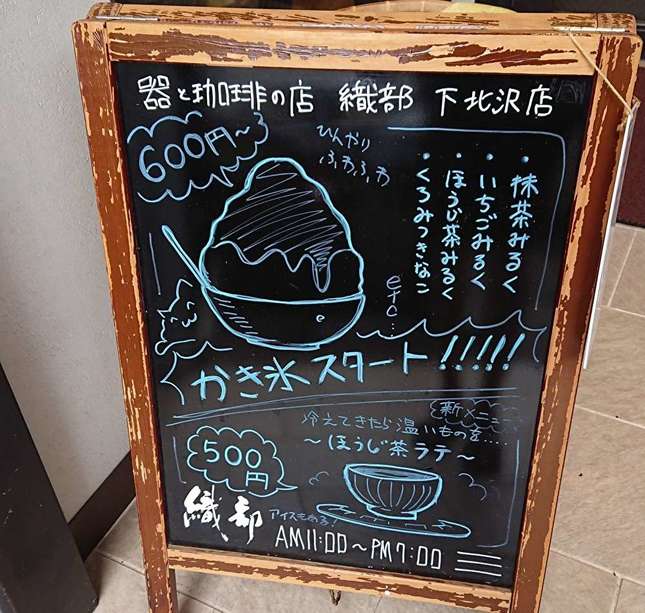 器と珈琲の店 織部 下北沢店
600円〜
ひんやり
ふわふわ
・抹茶みるく
・いちごみるく
・ほうじ茶みるく
・くろみつきなこ
etc...
かき氷スタート!!!!!
新メニュー
冷えてきたら温いものを....
〜ほうじ茶ラテ〜
500円
織部
アイスもある!
AM11:00〜PM7:00